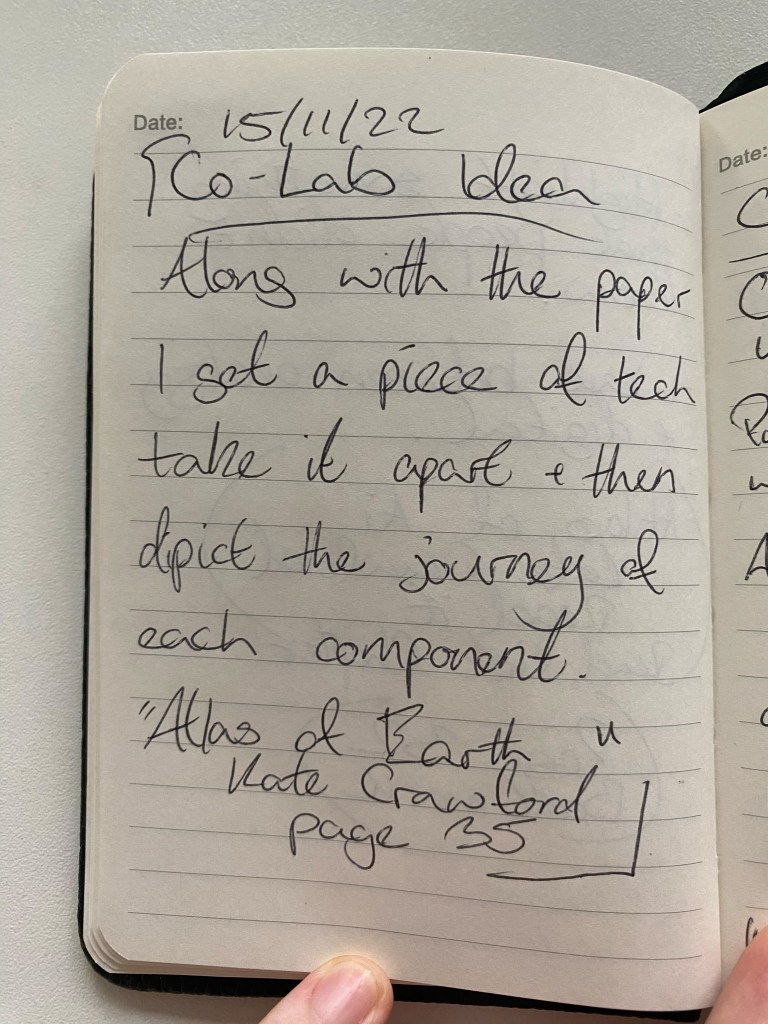 Date: 15/11/22
Co-Lab Idea
Along with the paper
I get a piece of tech
take it apart + then
dipict the journey of
each component.
"Atlas of Earth "
Kate Crawford
page 35
Date: